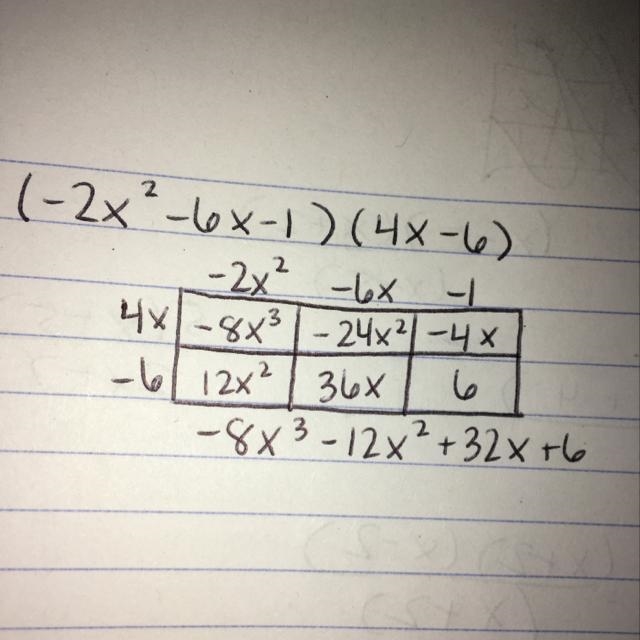 (-2x² -6x-1)(4x-6)
-2x² -6x -1
4x -8x³ -24x² -4x
-6 12x² 36x 6
-8x³ -12x² +32x +6